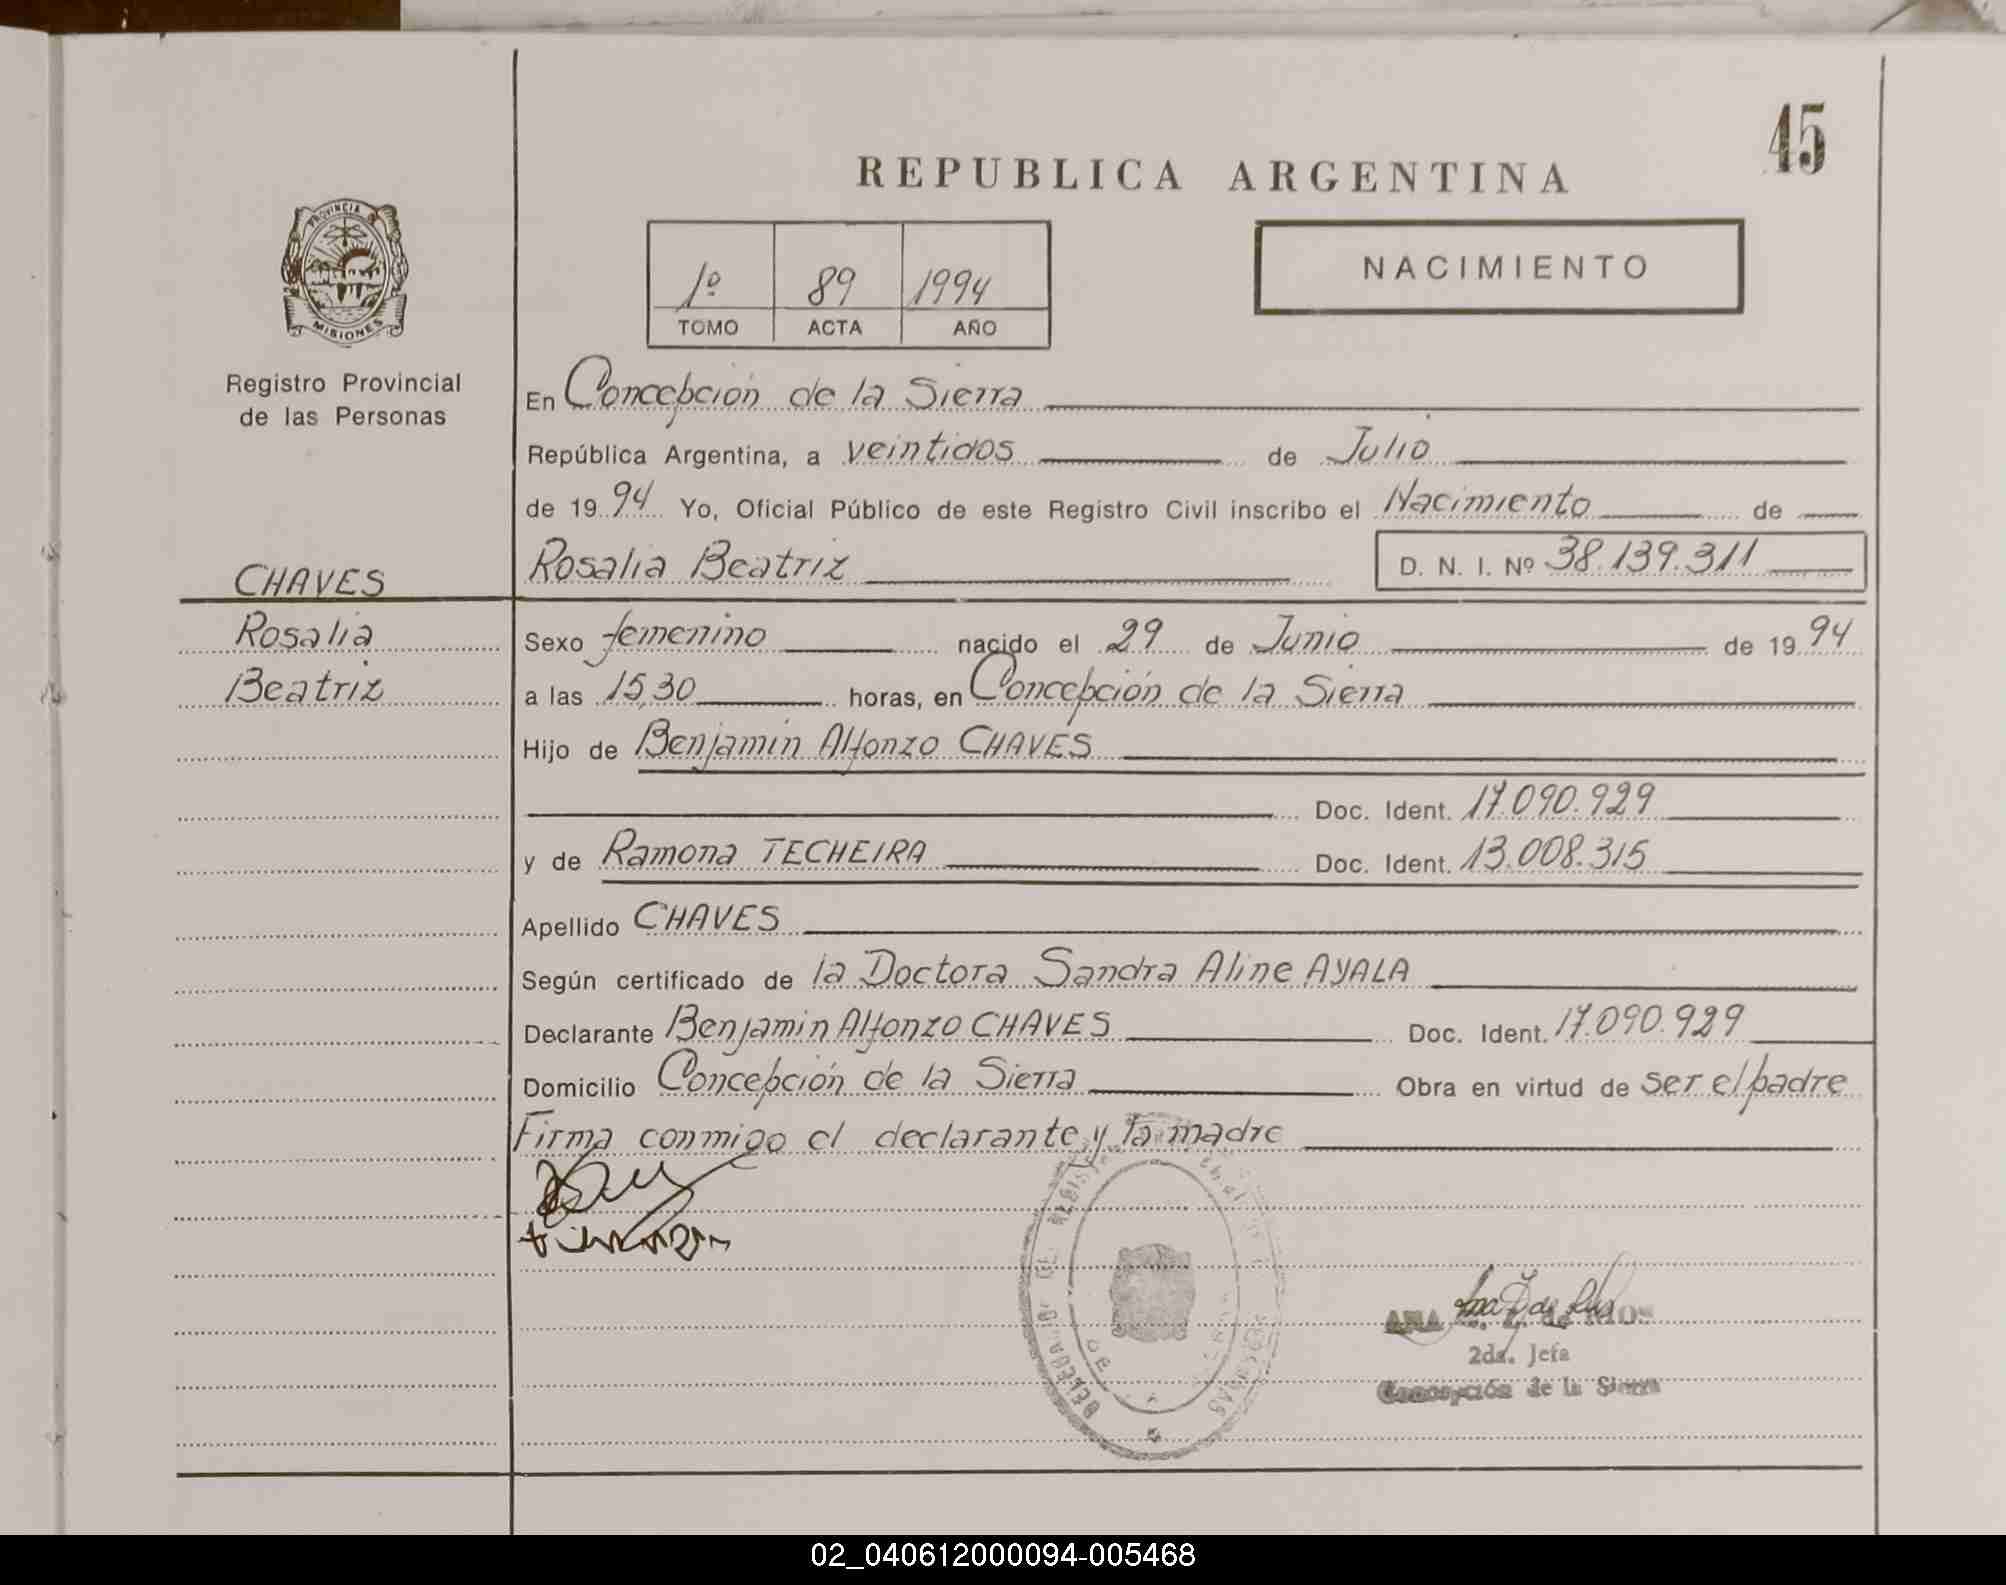 45
REPUBLICA ARGENTINA
PROVINCIA DE
MISIONES
Registro Provincial
de las Personas
1º 89 1994
TOMO ACTA AÑO
NACIMIENTO
En Concepción de la Sierra
República Argentina, a veintidos de Julio
de 1994 Yo, Oficial Público de este Registro Civil inscribo el Nacimiento de
CHAVES
Rosalia Beatriz D. N. I. Nº 38.139.311
Rosalia
Beatriz
Sexo femenino nacido el 29 de Junio de 1994
a las 15,30 horas, en Concepción de la Sierra
Hijo de Benjamin Alfonzo CHAVES
Doc. Ident. 17.090.929
y de Ramona TECHEIRA Doc. Ident. 13.008.315
Apellido CHAVES
Según certificado de la Doctora Sandra Aline AYALA
Declarante Benjamin Alfonzo CHAVES Doc. Ident. 17.090.929
Domicilio Concepción de la Sierra Obra en virtud de ser el padre
Firma conmigo el declarante y la madre
ANA de
2da. Jefa
Concepción de la Sierra
02_040612000094-005468